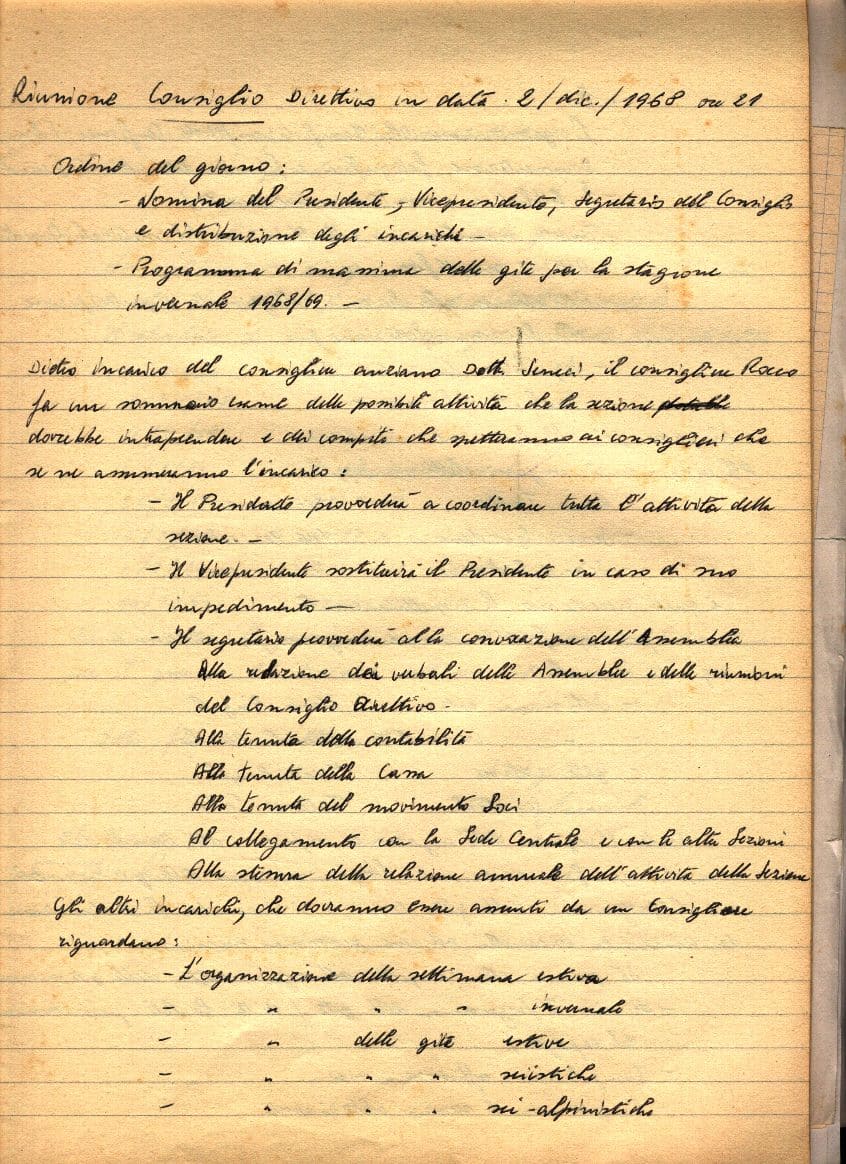 Riunione Consiglio Direttivo in data 2/dic./1968 ore 21
Ordine del giorno:
- Nomina del Presidente, Vicepresidente, Segretario del Consiglio
e distribuzione degli incarichi -
- Programma di massima delle gite per la stagione
invernale 1968/69. -
Dietro incarico del consigliere anziano Dott. Seneci, il consigliere Rocco
fa un sommario esame delle possibili attività che la sezione
dovrebbe intraprendere e dei compiti che spetteranno ai consiglieri che
se ne assumeranno l'incarico:
- Il Presidente provvederà a coordinare tutta l'attività della
sezione. -
- Il Vicepresidente sostituirà il Presidente in caso di suo
impedimento -
- Il segretario provvederà alla convocazione dell'Assemblea
Alla relazione dei verbali delle Assemblee e delle riunioni
del Consiglio Direttivo -
Alla tenuta della contabilità
Alla tenuta della Cassa
Alla tenuta del movimento Soci
Al collegamento con la Sede Centrale e con le altre Sezioni
Alla stesura della relazione annuale dell'attività della Sezione
Gli altri incarichi, che dovranno essere assunti da un Consigliere
riguardano:
- L'organizzazione della settimana estiva
- " " " invernale
- " delle gite estive
- " " " sciistiche
- " " " sci-alpinistiche